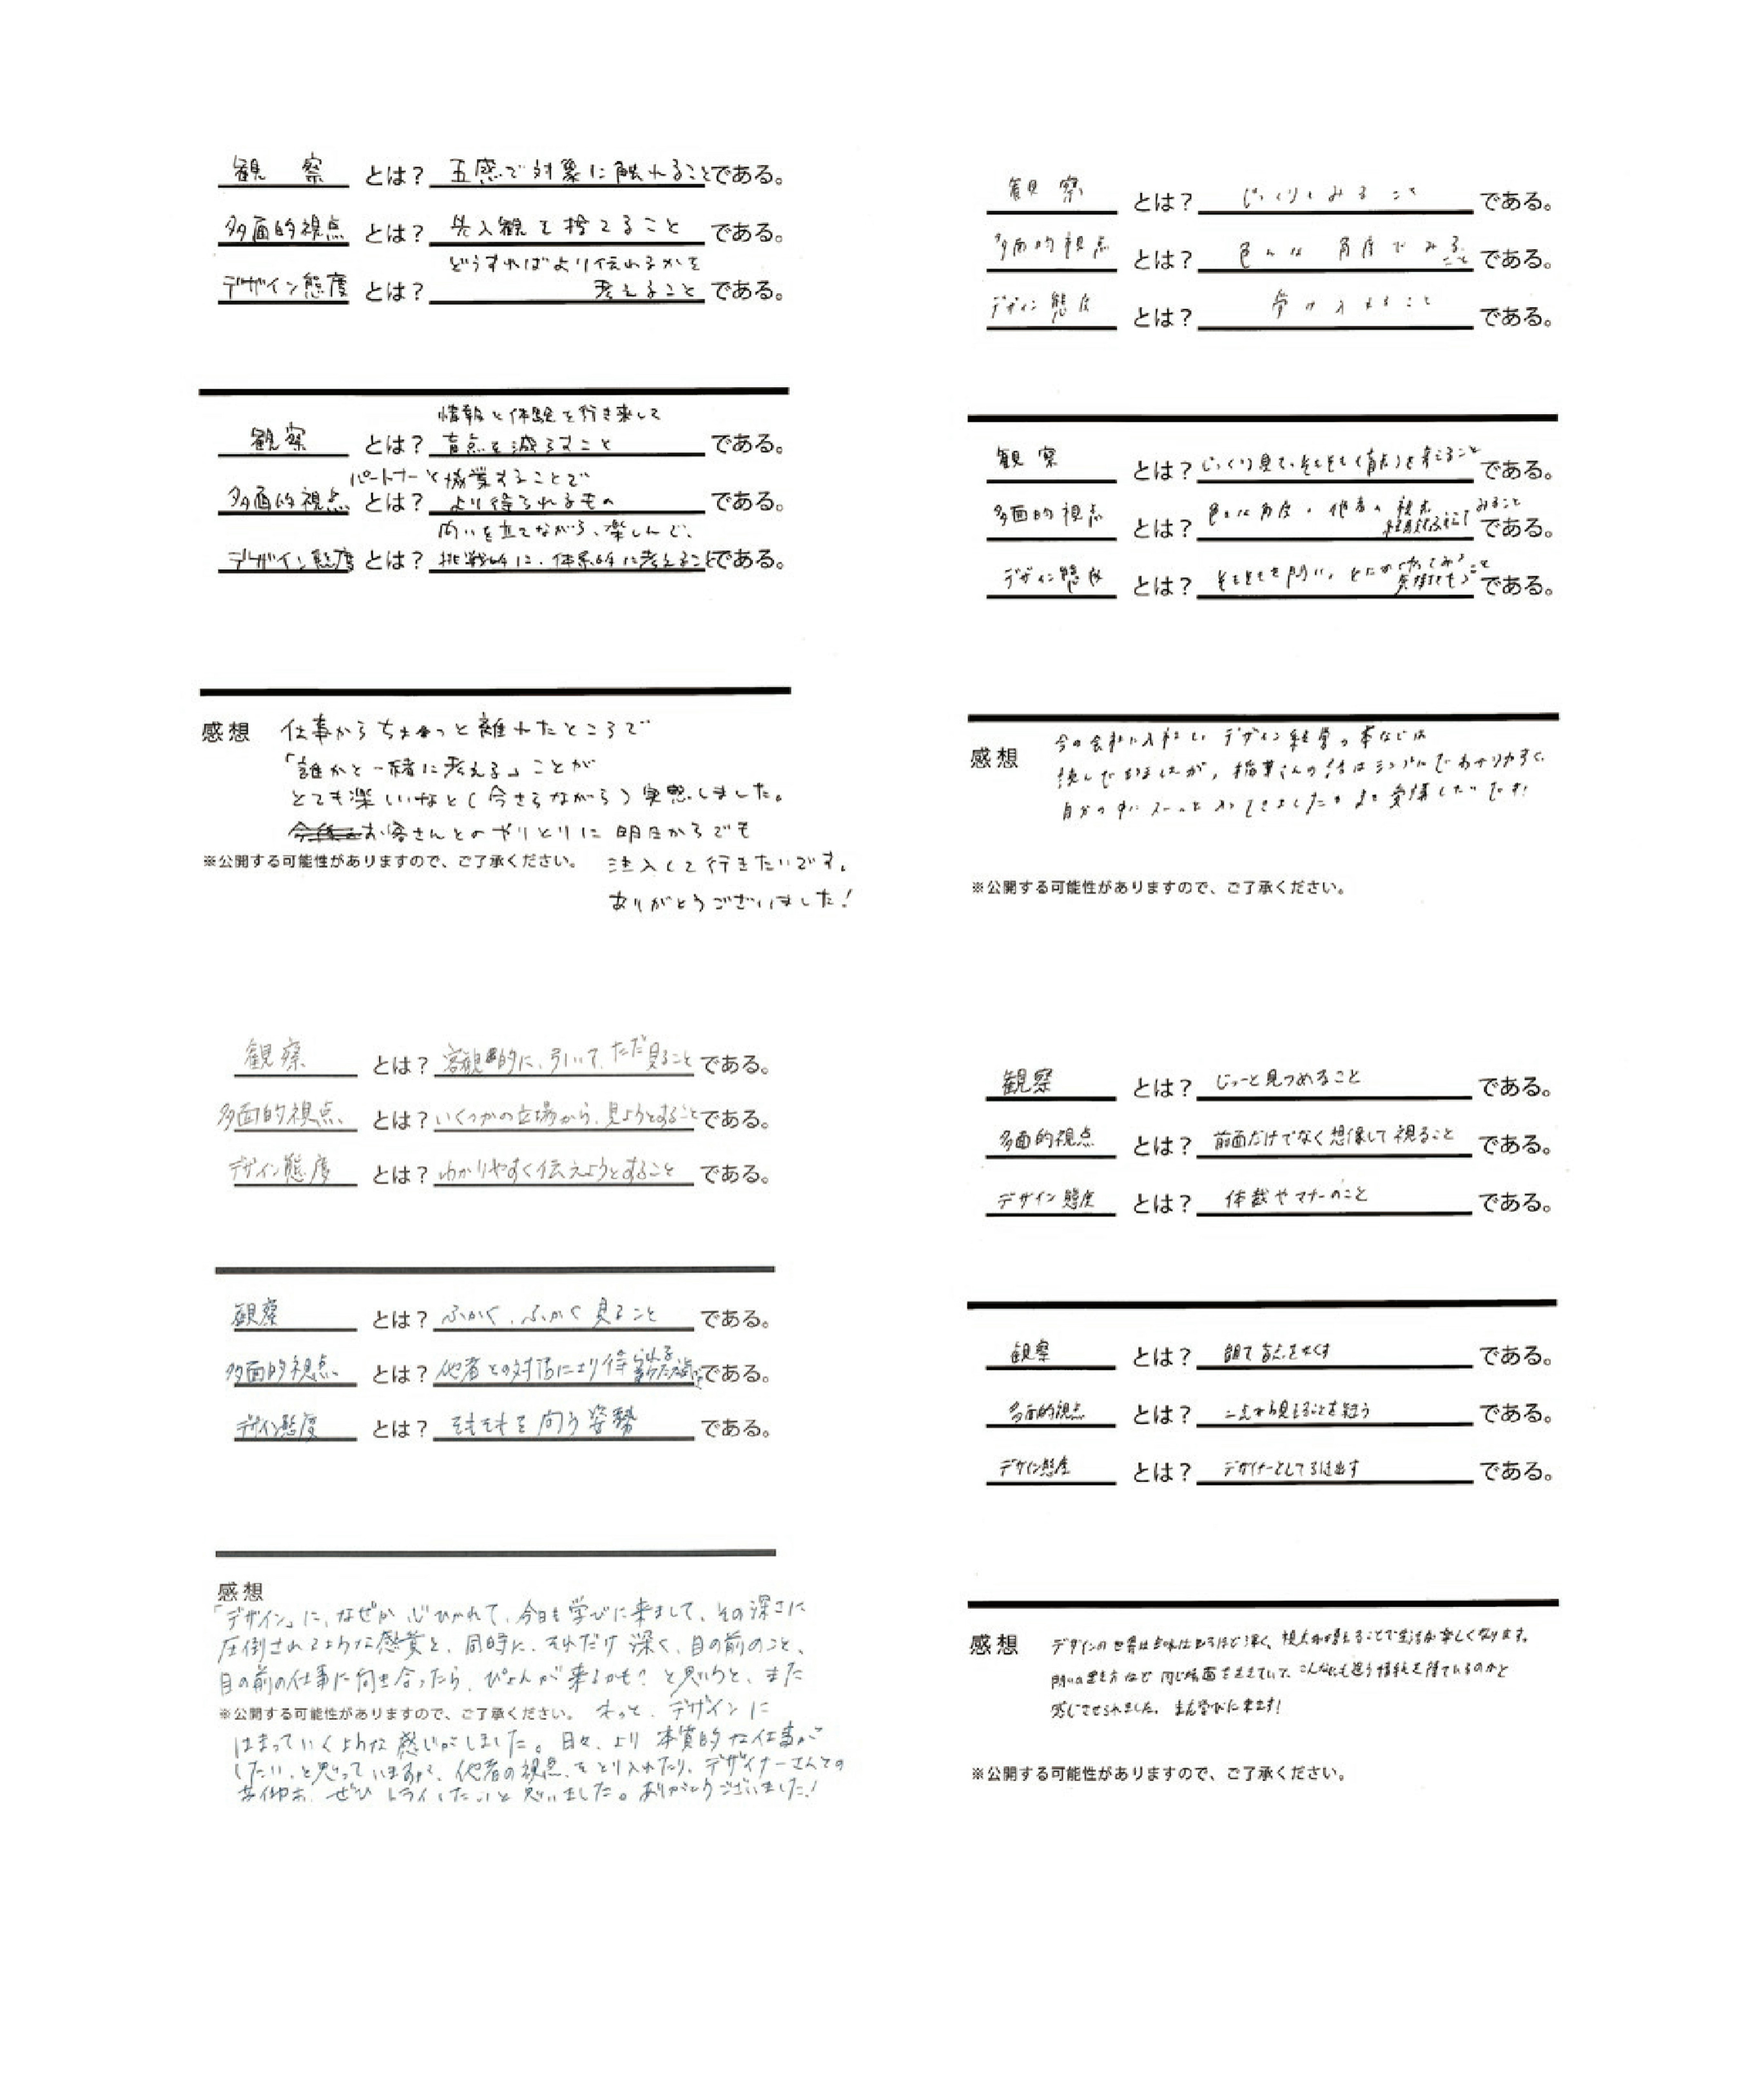 観察 とは? 五感で対象に触れることである。
多面的視点 とは? 先入観を捨てること である。
どうすればより伝わるかを
デザイン態度 とは? 考えること である。
情報と体験を行き来して
観察 とは? 盲点を減らすこと である。
パートナーと協業することで
多面的視点 とは? より得られるもの である。
問いを立てながら、楽しんで、
デザイン態度 とは? 挑戦的に、体系的に考えることである。
感想 仕事からちょっと離れたところで
「誰かと一緒に考える」ことが
とても楽しいなと(今さらながら)実感しました。
お客さんとのやりとりに明日からでも
※公開する可能性がありますので、ご了承ください。 注入して行きたいです。
ありがとうございました!
観察 とは? じっくりとみること である。
多面的視点 とは? 色んな角度でみること である。
デザイン態度 とは? である。
観察 とは? じっくり見て、そもそも(盲点)を考えること である。
多面的視点 とは? 色々な角度、他者の視点 みること である。
デザイン態度 とは? そもそもを問い、とにかくやってみること である。
感想 今の会社に入社し デザイン経営の本などは
読んでおりましたが、稲葉さんの話はシンプルでわかりやすく、
自分の中にスーッと入ってきました。また受講したいです!
※公開する可能性がありますので、ご了承ください。
観察 とは? 客観的に、引いて、ただ見ること である。
多面的視点 とは? いくつかの立場から、見ようとすることである。
デザイン態度 とは? わかりやすく伝えようとすること である。
観察 とは? ふかく、ふかく見ること である。
多面的視点 とは? 他者との対話により得られる である。
デザイン態度 とは? そもそもを問う姿勢 である。
感想
「デザイン」に、なぜか心ひかれて、今日も学びに来まして、その深さに
圧倒されるような感覚と、同時に、それだけ深く、目の前のこと、
目の前の仕事に向き合ったら、ぴょんが来るかも?と思いうと、また
※公開する可能性がありますので、ご了承ください。 もっと、デザインに
はまっていくような感じがしました。日々、より本質的な仕事が
したい、と思っていますが、他者の視点をとり入れたり、デザイナーさんとの
共創も、ぜひトライしたいと思いました。ありがとうございました!
観察 とは? じっーと見つめること である。
多面的視点 とは? 前面だけでなく想像して視ること である。
デザイン態度 とは? 体裁やマナーのこと である。
観察 とは? 観て盲点をなくす である。
多面的視点 とは? 見えることを疑う である。
デザイン態度 とは? デザイナーとして引き出す である。
感想 デザインの世界は知れば知るほど深く、視点が増えることで生活が楽しくなります。
問いの置き方など同じ場面を生きていて、こんなにも違う情報を得ているのかと
感じさせられました。また学びに来ます!
※公開する可能性がありますので、ご了承ください。